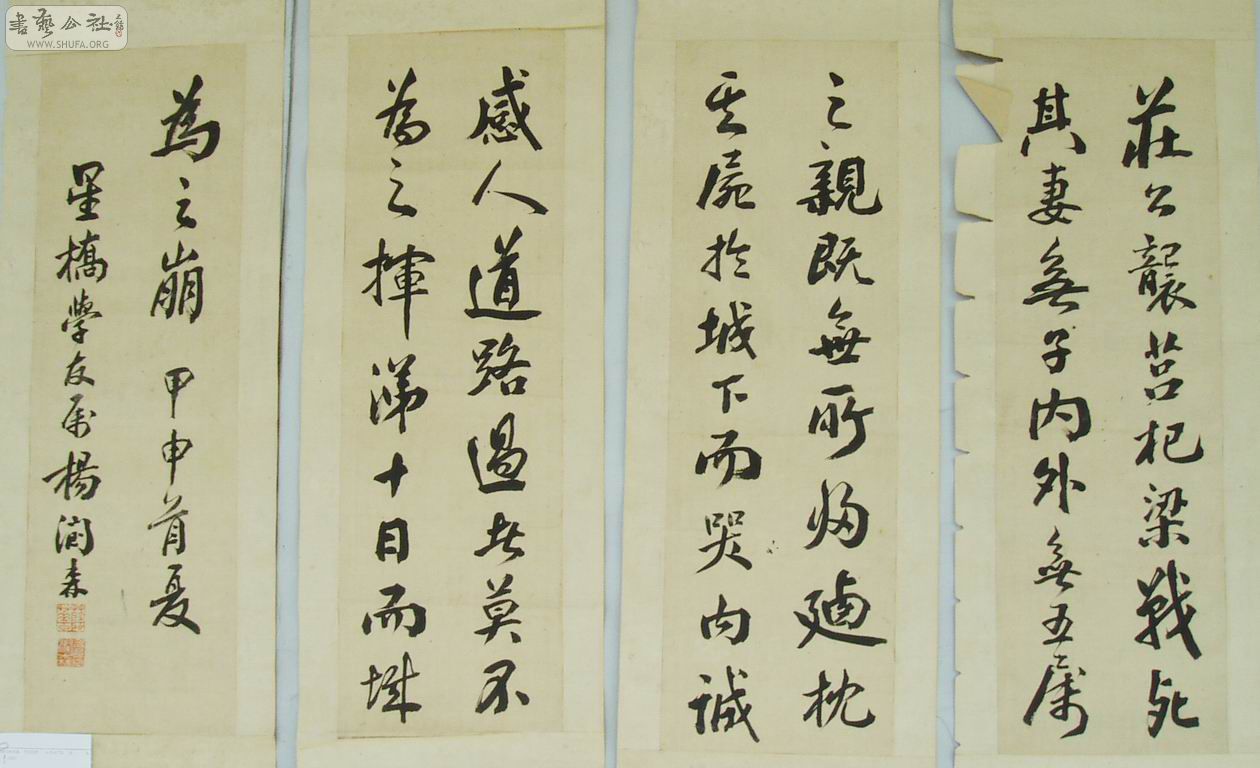 莊公襲莒杞梁戰死
其妻無子內外無五屬
之親既無所歸廼枕
其屍於城下而哭內誠
感人道路過者莫不
為之揮涕十日而城
為之崩 甲申首夏
星橋學友屬 楊潤森
書藝公社
WWW.SHUFA.ORG